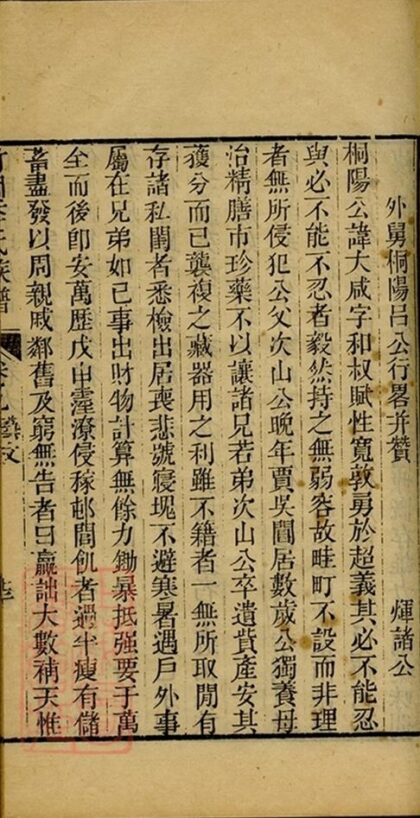 外舅桐陽呂公行畧并贊
煇諸公
桐陽公諱大咸字和叔賦性寬敦勇於趨義其必不能忍
與必不能不忍者毅然持之無弱容故畦町不設而非理
者無所侵犯公父次山公晚年賈吳閶居數歲公獨養母
治精膳市珍藥不以讓諸兄若弟次山公卒遺貲產安其
獲分而已襲複之藏器用之利雖不籍者一無所取閒有
存諸私閨者悉檢出居喪悲號寢塊不避寒暑遇戶外事
屬在兄弟如己事出財物計算無餘力鋤暴抵强要于萬
全而後卽安萬歷戊申霪潦侵稼邨閭飢者過半瘦有儲
蓄盡發以周親戚鄰舊及窮無告者曰贏詘大數補天惟
氏族譜
卷九